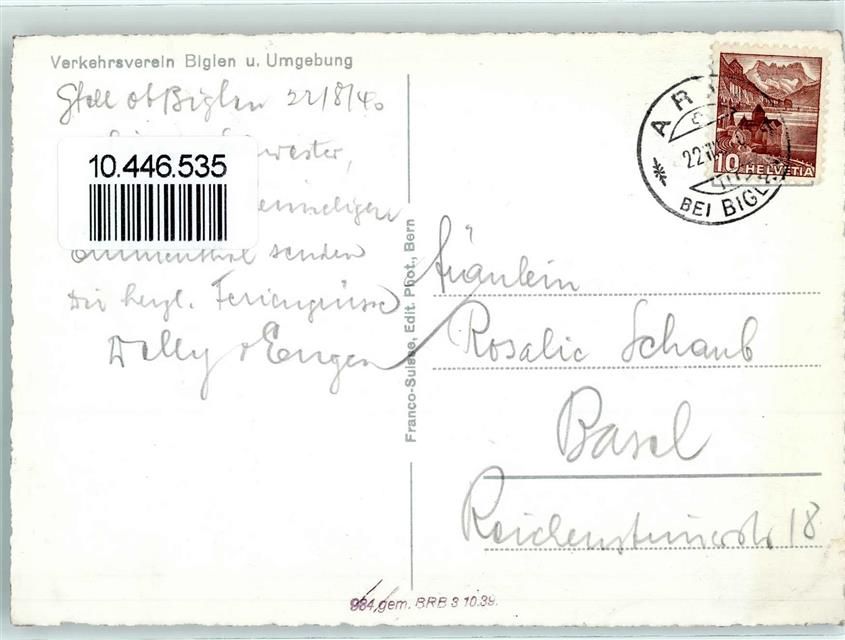 Verkehrsverein Biglen u. Umgebung
Gfell ob Biglen 22/8/40
10.446.535
Emmenthal senden
Dir herzl. Feriengrüsse
Willy & Eugen
Franco-Suisse, Edit. Phot., Bern
AR
22.VII
BEI BIGLEN
10 HELVETIA
Fräulein
Rosalie Schaub
Basel
Reichensteinerstr. 18
984, gem. BRB 3 10.39.